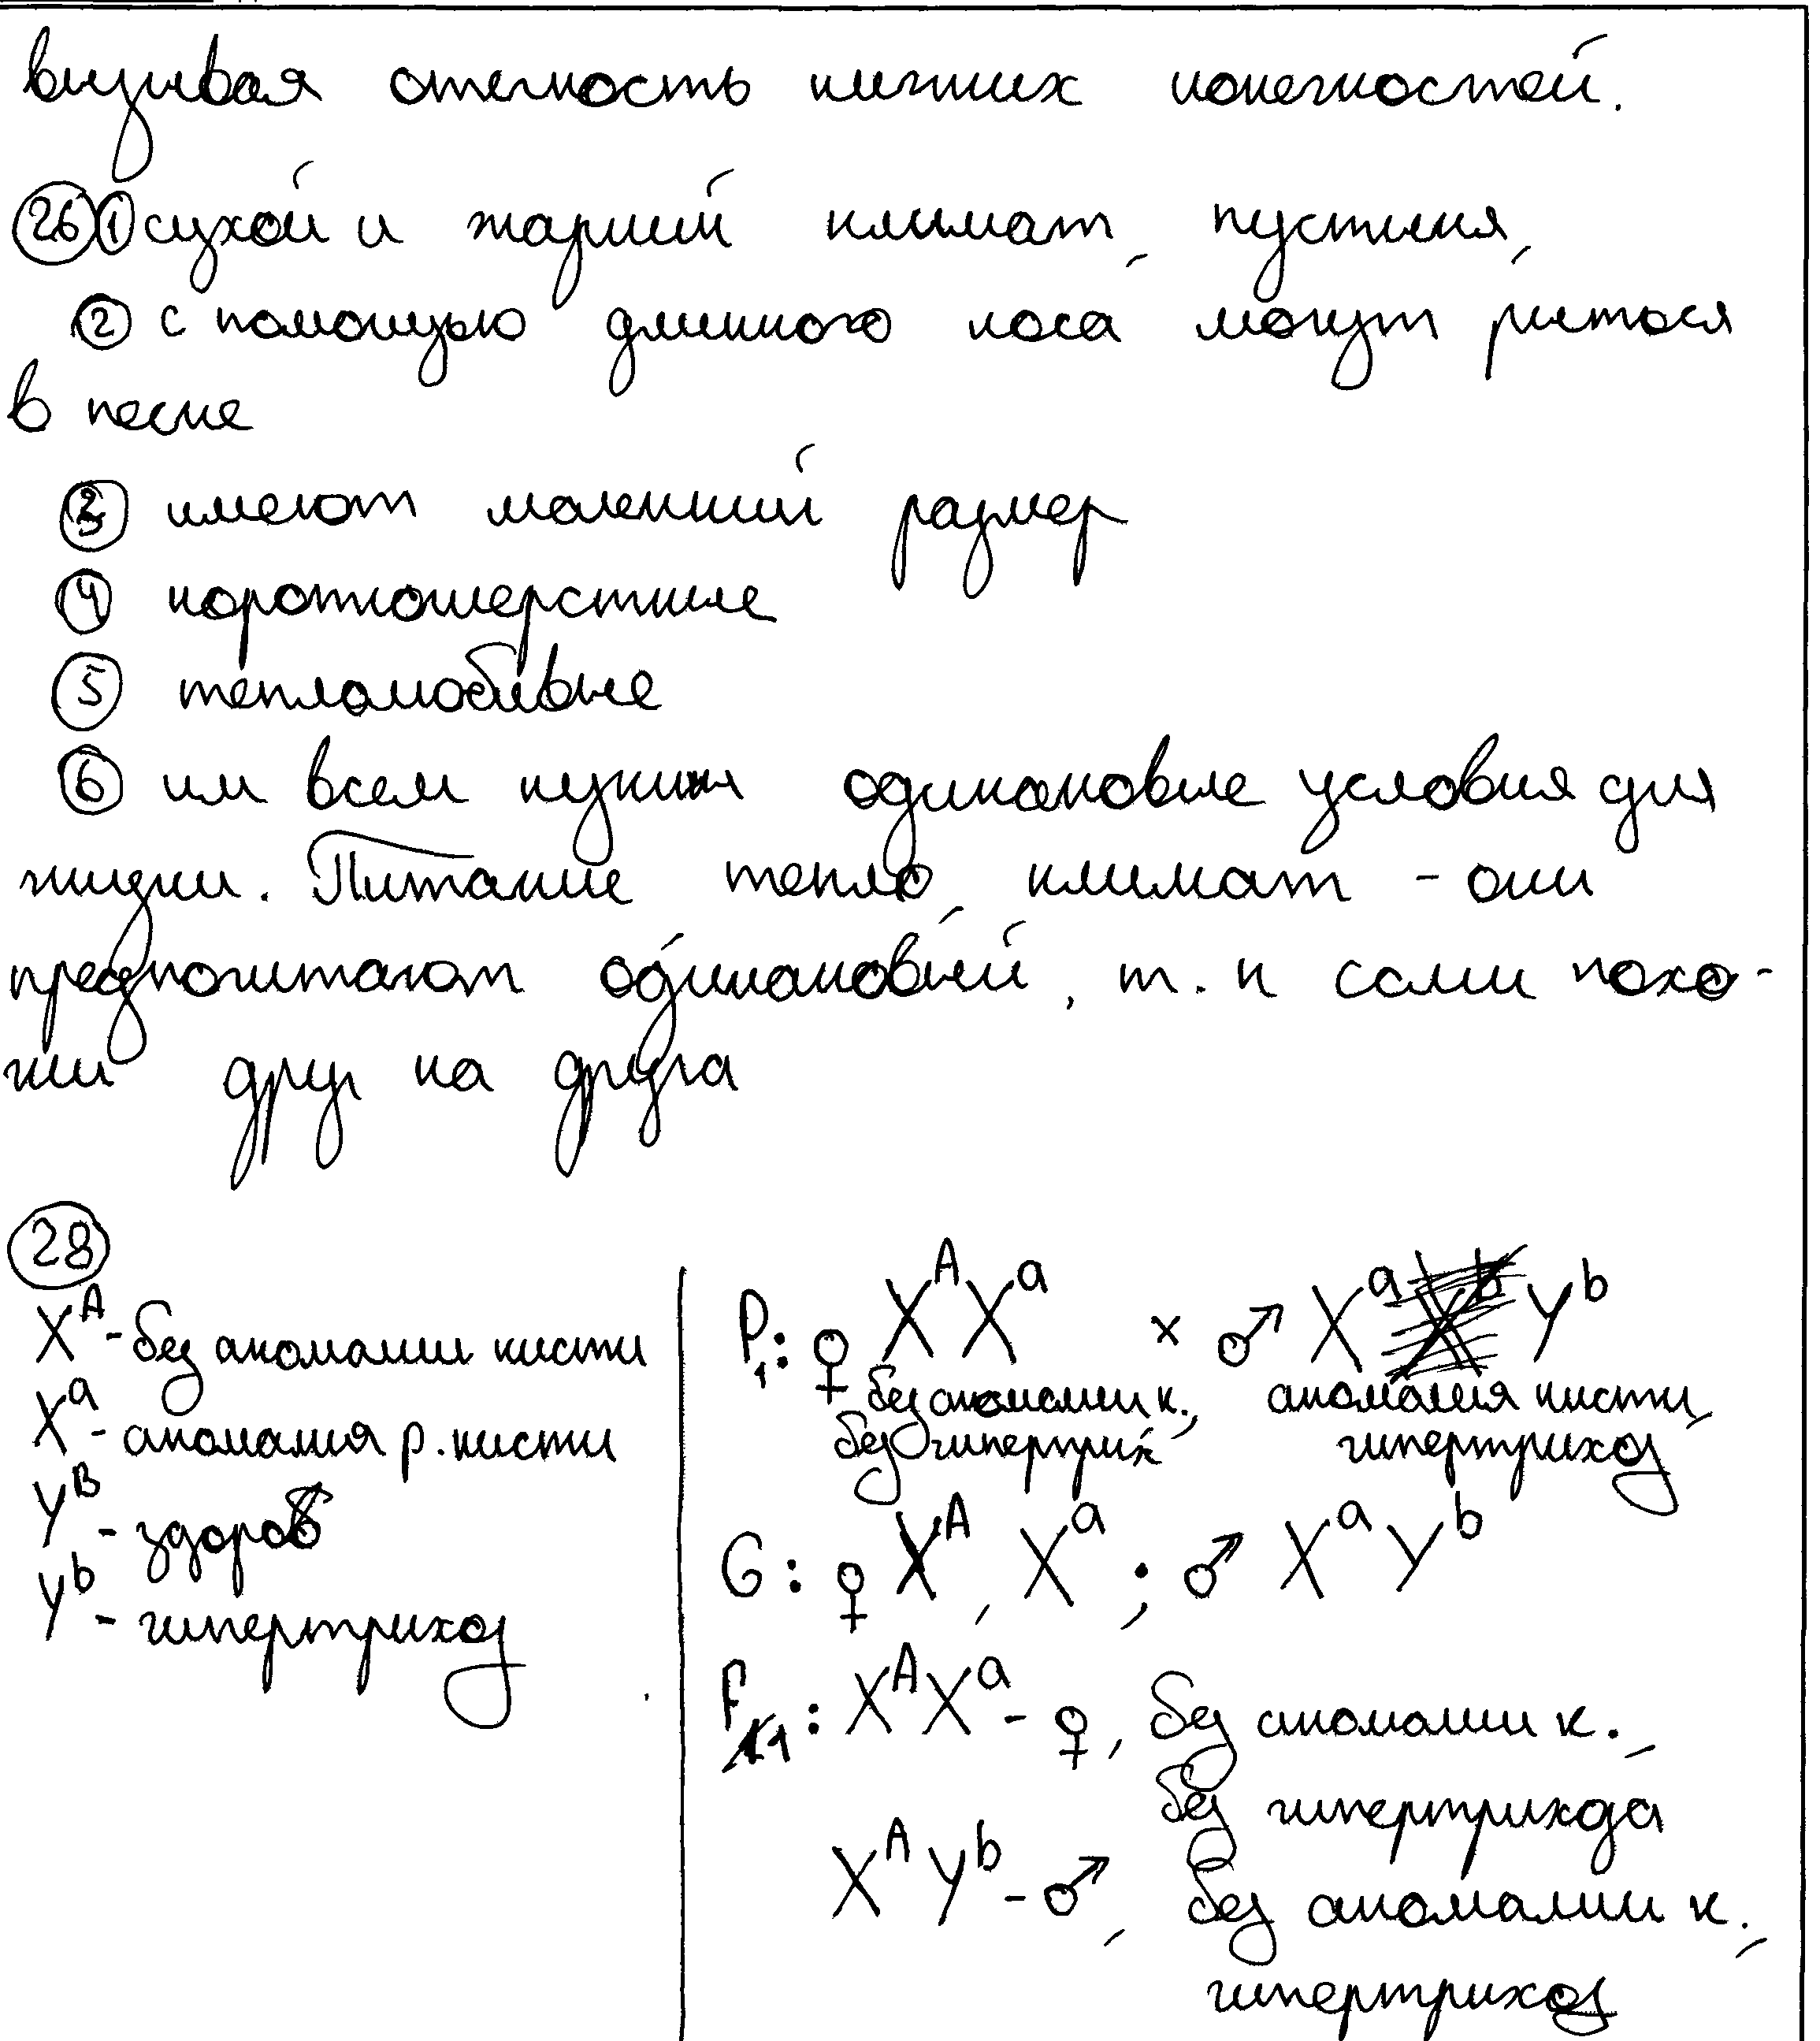 вызывая отечность нижних конечностей.
26 1 сухой и жаркий климат, пустыня,
2 с помощью длинного носа могут рыться
в песке
3 имеют маленький размер
4 короткошерстные
5 теплолюбивые
6 им всем нужны одинаковые условия для
жизни. Питание, тепло, климат - они
предпочитают одинаковый, т. к сами похо-
жи друг на друга
28
X^A - без аномалии кисти
X^a - аномалия р. кисти
Y^B - здоров
Y^b - гипертрихоз
P1: ♀ X^A X^a × ♂ X^a Y^b
без аномалии к., аномалия кисти,
без гипертрих гипертрихоз
G: ♀ X^A, X^a ; ♂ X^a Y^b
F1: X^A X^a - ♀, без аномалии к.,
без гипертрихоза
X^A Y^b - ♂, без аномалии к.,
гипертрихоз